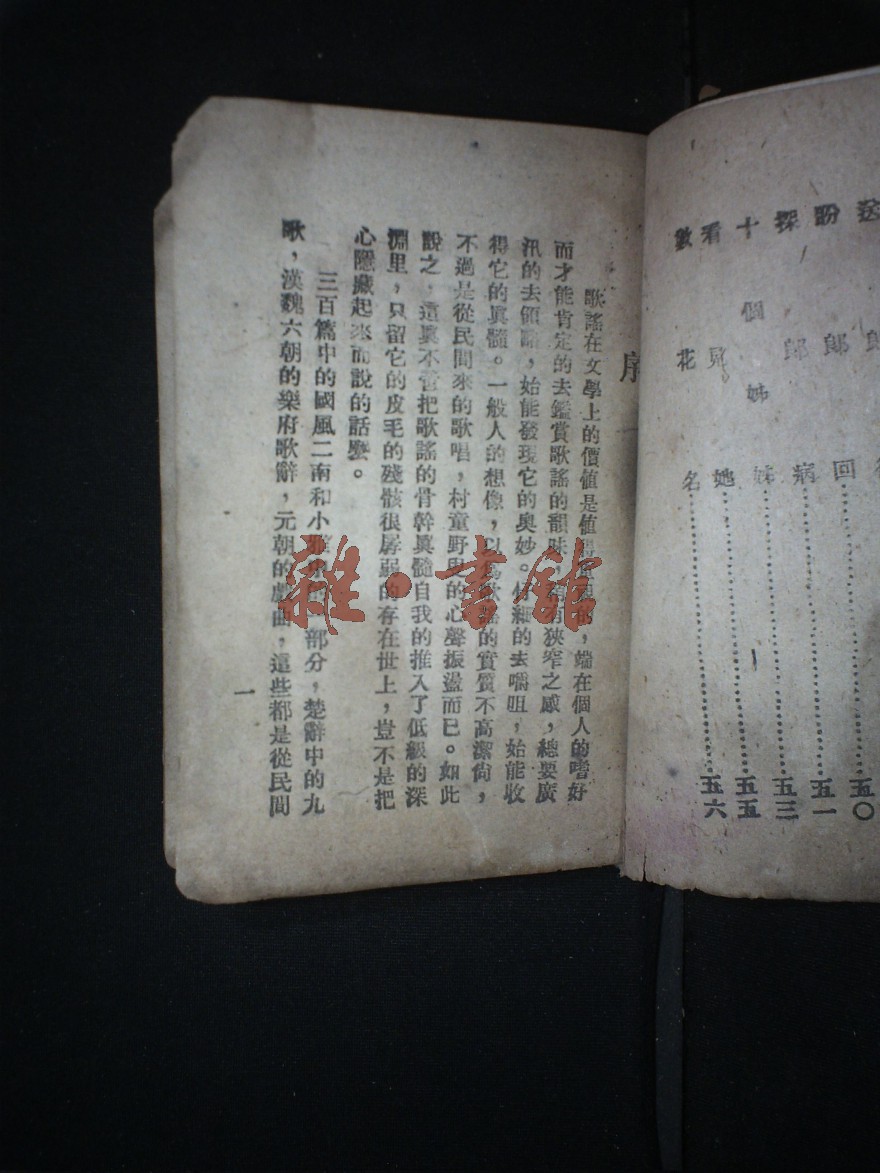 送郎回……五〇
盼郎……五一
探郎病……五三
十個姊……五五
看見她……五五
數花名……五六
序
歌謠在文學上的價值是值，端在個人的嗜好
而才能肯定的去鑑賞歌謠的韻味，有狹窄之感，總要廣
汛的去領略，始能發現它的奧妙。仔細的去嚼咀，始能收
得它的眞髓。一般人的想像，以爲歌謠的實質不高潔尙，
不過是從民間來的歌唱，村童野叟的心聲振盪而已。如此
說之，這眞不啻把歌謠的骨幹眞髓自我的推入了低級的深
淵里，只留它的皮毛的殘骸很孱弱的存在世上，豈不是把
心隱藏起來而說的話麼。
三百篇中的國風二南和小雅部分，楚辭中的九
歌，漢魏六朝的樂府歌辭，元朝的戲曲，這些都是從民間
一
雜·書館